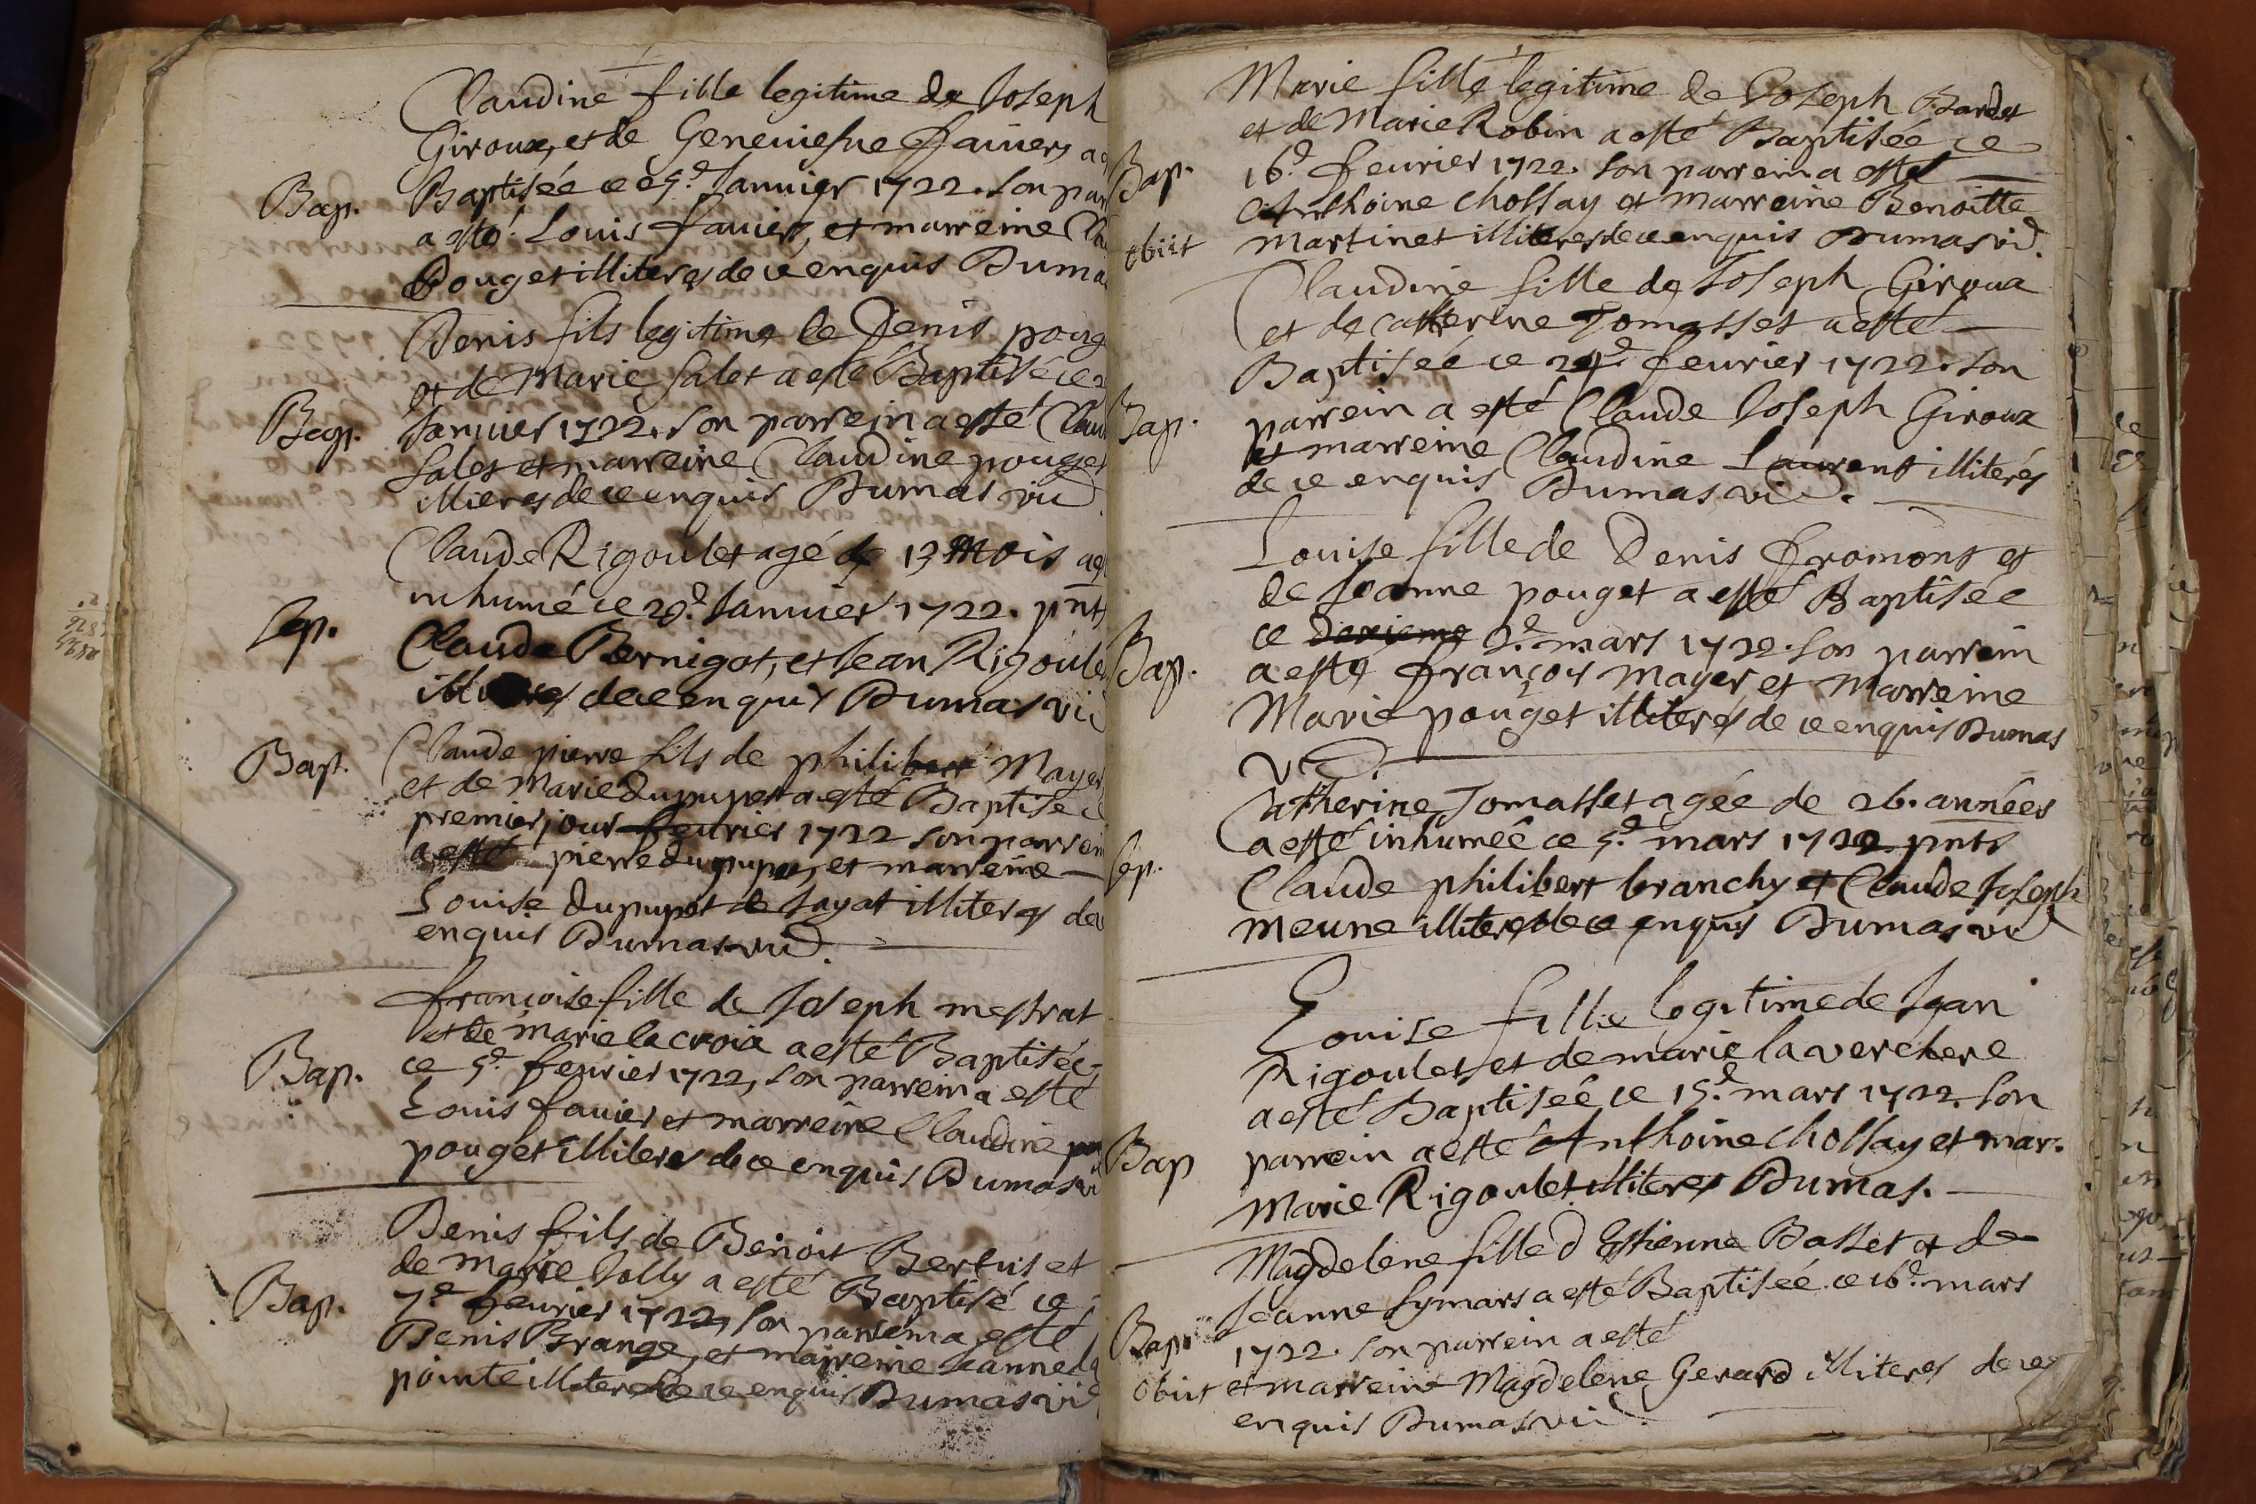 Claudine fille legitime de Joseph
Giroux, et de Geneviefve favier, a
Bap. Baptisée ce 5.e Janvier 1722. son par
a esté Louis favier, et marreine
Pouget illiteres de ce enquis Duma
Denis fils legitime de Denis poug
et de Marie salet a esté Baptisé ce
Bap. Janvier 1722. son parrein a esté Clau
salet et marreine Claudine pouget
illieres de ce enquis Dumas vic
Claude Rigoulet agé de 13 mois a
inhumé ce 29.e Janvier 1722. pnts
Sep. Claude Bernigot, et Jean Rigoule
de ce enquis Dumas vic
Bap. Claude pierre fils de philibert Mayer
et de Marie dupuper a esté Baptisé
premier jour fevrier 1722 son parrein
a esté pierre dupuper, et marreine
Louise dupuper de Jayat illiteres de
enquis Dumas vic.
françoise fille de Joseph mestrat
et de Marie la croix a esté Baptisée
Bap. ce 5.e fevrier 1722, son parrein a esté
Louis favier et marreine Claudine
pouget illiteres de ce enquis Dumas
Denis fils de Benoit Bertuis et
de Marie Jolly a esté Baptisé ce
Bap. 7.e fevrier 1722, son parrein a esté
Denis Brange, et marreine Jeanne la
pointe illiteres de ce enquis Dumas vic
Marie fille legitime de Joseph Bardet
et de Marie Robin a esté Baptisée ce
Bap. 16.e fevrier 1722. son parrein a esté
Anthoine chossay et marreine Benoitte
obiit Martinet illiteres de ce enquis Dumas vic.
Claudine fille de Joseph Giroux
et de catherine Tomasset a esté
Baptisée ce 24.e fevrier 1722. son
Bap. parrein a esté Claude Joseph Giroux
et marreine Claudine Laurent illiterés
de ce enquis Dumas vic.
Louise fille de Denis fromont et
de Jeanne pouget a esté Baptisée
ce deuxieme 2.e mars 1722. son parrein
Bap. a esté françois mayer, et marreine
Marie pouget illiteres de ce enquis Dumas
vic.
Catherine Tomasset agée de 26. années
a esté inhumée ce 5.e mars 1722. pnts
Sep. Claude philibert branchy et Claude Joseph
meune illiteres de ce enquis Dumas vic
Louise fille legitime de Jean
Rigoulet, et de marie la verchere
a esté Baptisée ce 15.e mars 1722. son
Bap parrein a esté Anthoine chossay et mar.
Marie Rigoulet illiteres Dumas.
Magdelene fille d Estienne Basset et de
Jeanne symars a esté Baptisée ce 16.e mars
Bap. 1722. son parrein a esté
obiit et marreine Magdelene Gerard illiteres de ce
enquis Dumas vic.